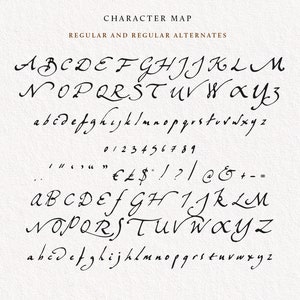 CHARACTER MAP
REGULAR AND REGULAR ALTERNATES
A B C D E F G H I J K L M
N O P Q R S T U V W X Y Z
a b c d e f g h i j k l m n o p q r s t u v w x y z
0 1 2 3 4 5 6 7 8 9
. , ' " ‘ ’ “ ” € £ $ ! ? | @ & + - =
A B C D E F G H I J K L M
N O P Q R S T U V W X Y Z
a b c d e f g h i j k l m n o p q r s t u v w x y z